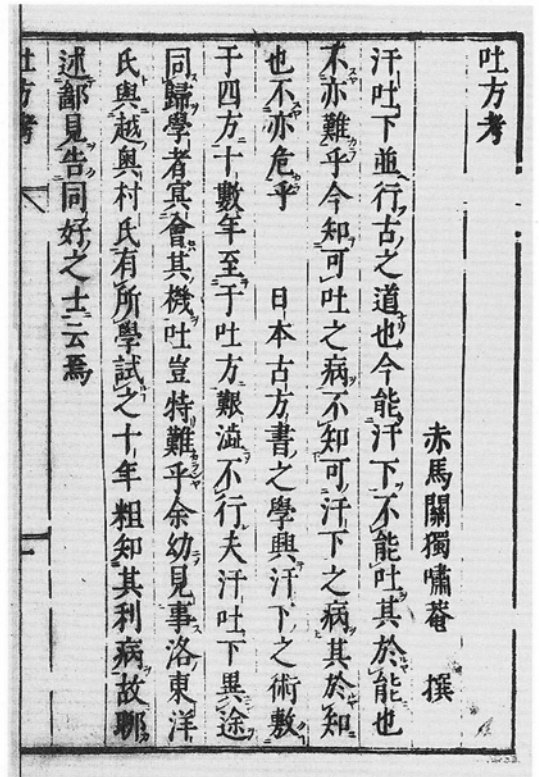 吐方考
赤馬關獨嘯菴　撰
汗吐下並行古之道也今能汗下不能吐其於能也
不亦難乎今知可吐之病不知可汗下之病其於知
也不亦危乎　　日本古方書之學興汗下之術敷
于四方十數年至于吐方艱澁不行夫汗吐下異途
同歸學者冥會其機吐豈特難乎余幼見事洛東洋
氏與越奧村氏有所學試之十年粗知其利病故聊
述鄙見告同好之士云焉
吐方考